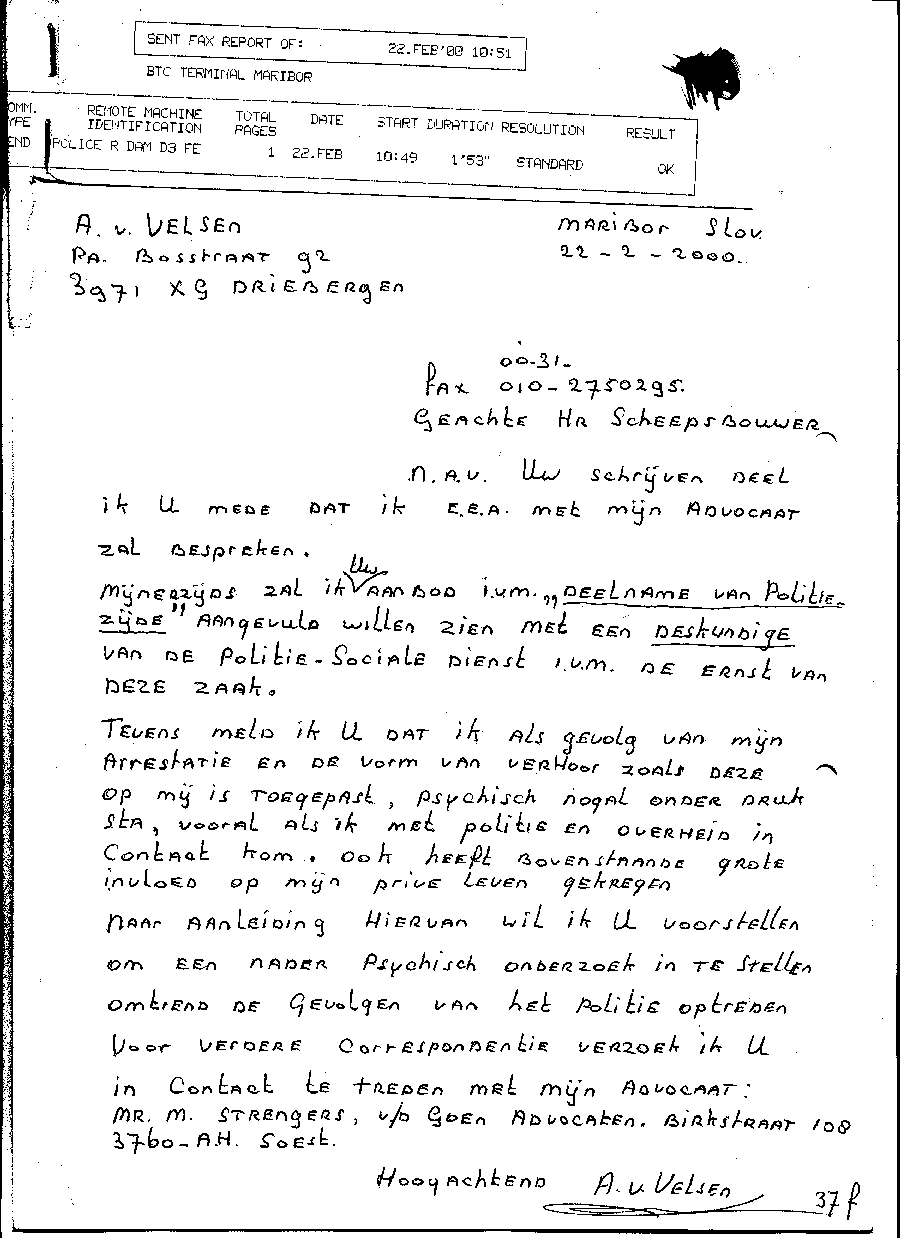 SENT FAX REPORT OF: 22.FEB'00 10:51
BTC TERMINAL MARIBOR
OMM. REMOTE MACHINE TOTAL DATE START DURATION RESOLUTION RESULT
YPE IDENTIFICATION PAGES
END POLICE R DAM D3 FE 1 22.FEB 10:49 1'53" STANDARD OK
A. v. VELSEN MARIBOR SLOV.
PA. BOSSTRAAT 92 22-2-2000.
3971 XG DRIEBERGEN
00-31-
FAX 010-2750295.
GEACHTE HR SCHEEPSBOUWER
N.A.V. UW SCHRIJVEN DEEL
ik U MEDE DAT ik E.E.A. MET MIJN ADVOCAAT
ZAL BESPREKEN.
UW
MIJNERZIJDS ZAL IK AANBOD I.V.M. „DEELNAME VAN POLITIE-
ZIJDE" AANGEVULD WILLEN ZIEN MET EEN DESKUNDIGE
VAN DE POLITIE-SOCIALE DIENST I.V.M. DE ERNST VAN
DEZE ZAAK.
TEVENS MELD IK U DAT IK ALS GEVOLG VAN MIJN
ARRESTATIE EN DE VORM VAN VERHOOR ZOALS DEZE
OP MIJ IS TOEGEPAST, PSYCHISCH NOGAL ONDER DRUK
STA, VOORAL ALS IK MET POLITIE EN OVERHEID IN
CONTACT KOM. OOK HEEFT BOVENSTAANDE GROTE
INVLOED OP MIJN PRIVE LEVEN GEKREGEN
NAAR AANLEIDING HIERVAN WIL IK U VOORSTELLEN
OM EEN NADER PSYCHISCH ONDERZOEK IN TE STELLEN
OMTREND DE GEVOLGEN VAN HET POLITIE OPTREDEN
VOOR VERDERE CORRESPONDENTIE VERZOEK IK U
IN CONTACT TE TREDEN MET MIJN ADVOCAAT:
MR. M. STRENGERS, v/D GOEN ADVOCATEN. BIRKSTRAAT 108
3760-A.H. SOEST.
HOOGACHTEND A. v. VELSEN
37f